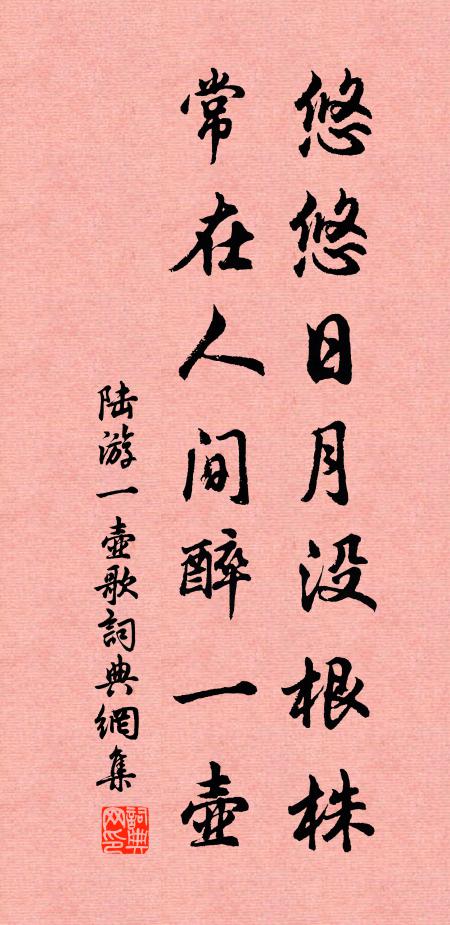 悠悠日月没根株
常在人间醉一壶
陆游一壶歌詞典網集
詞典网印